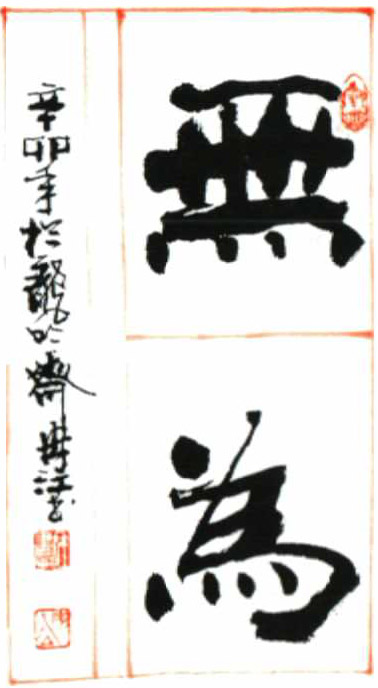 無為
辛卯年於龍吟齋 江書